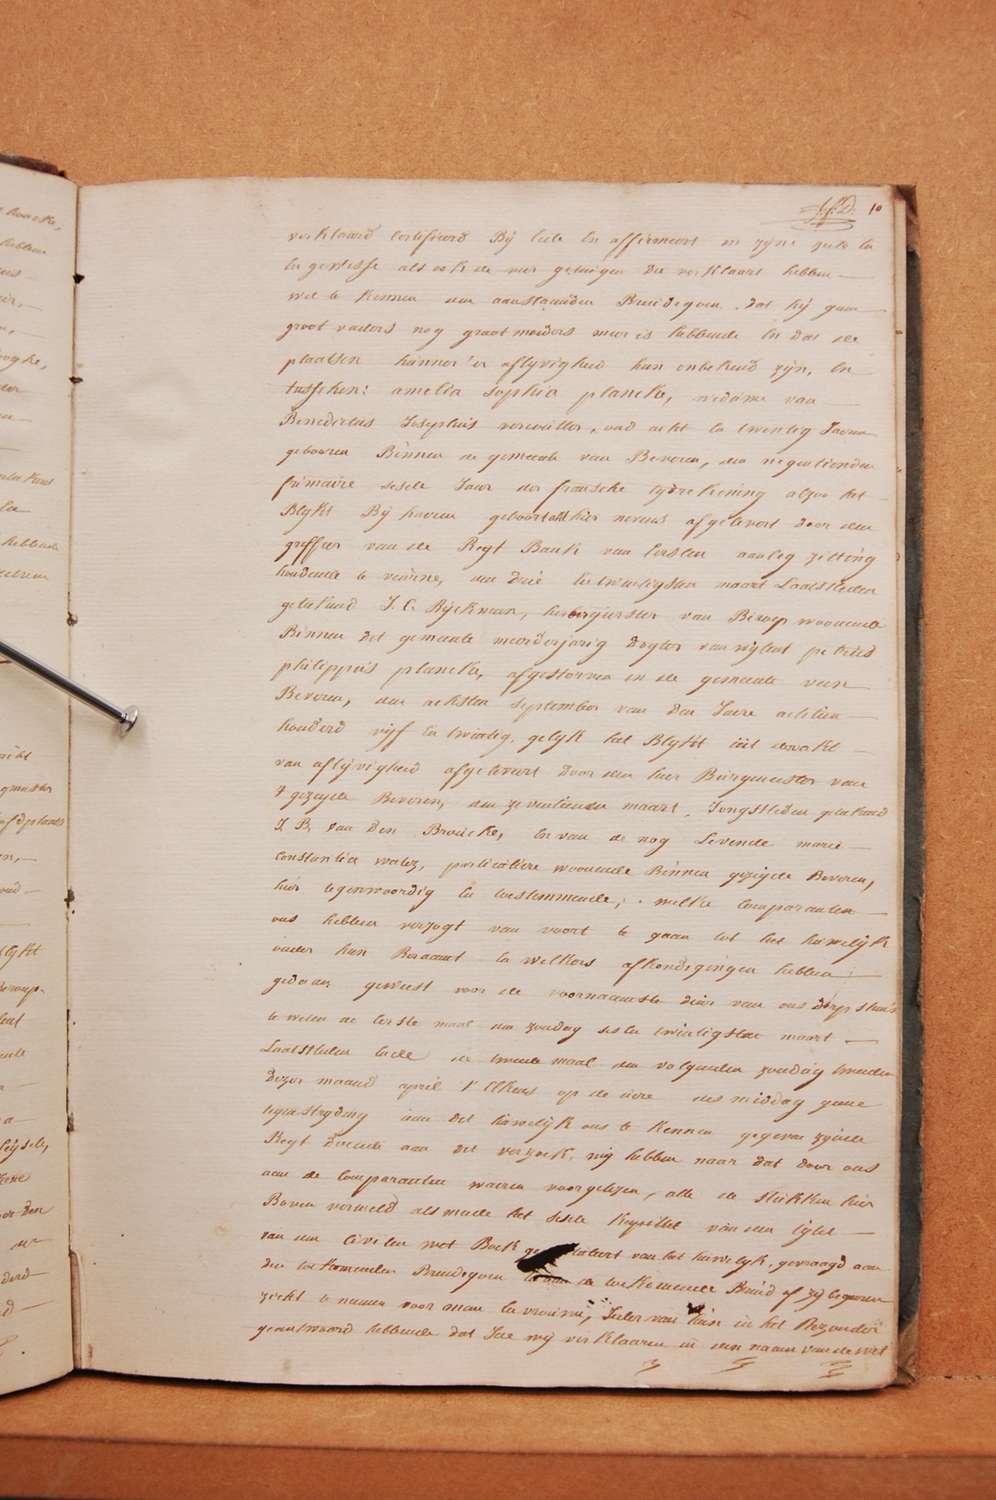 10
verklaard Certifieerd Bij Eede En affirmeert in zijne ziele En
En gewisse als ook de vier getuigen die verklaart hebben
wel te kennen den aanstaanden Bruidegom, dat hij geen
groot vaders nog groot moeders meer is hebbende En dat de
plaatsen hunner aflyvigheid hun onbekend zijn, En
tusschen: amelia Sophia plancke, wedúwe van
Benedictus Josephús, oud acht En twintig Jaeren
gebooren Binnen de gemeente van Beveren, den negentienden
frimaire sesde Jaer der fransche tydrekening alzoo het
Blykt Bij haeren geboortakt hier nevens afgelevert door den
greffier van de Regt Bank van Eersten aanleg zitting
houdende te veúrne, den drie En twintigsten maart Laatstleden
getekend J. C. Ryckman, herbergierster van Beroep woonende
Binnen det gemeente meerderjarig dogter van wylent petrús
philippús plancke, afgestorven in de gemeente van
Beveren, den achsten september van den Jaere achtien
honderd vijf En twintig, gelyk het Blykt úit den akt
van aflyvigheid afgelevert door den heer Búrgmeester van
't gezegde Beveren, den zeventienden maart Jongstleden getekend
J. B. van den Broúcke, En van de nog Levende marie
Constantia, particúliere woonende Binnen gezegde Beveren,
hier tegenwoordig En toestemmende; welke Comparanten
ons hebben verzogt van voort te gaan tot het húwelijk
onder hun Beraamt En welkers afkondigingen hebben
gedaan geweest voor de voornaamste deúr van ons dorps húis
te weten de Eerste maal den zondag ses En twintigsten maart
Laatstleden Ende de tweede maal den volgenden zondag tweeden
dezer maand april t'Elkens op de úere des middag geene
tegenstryding aan dit húwelyk ons te kennen gegeven zynde
Regt doende aan dit verzoek, wij hebben naar dat door ons
aan de Comparanten waeren voorgelezen, alle de stúkken hier
Boven vermeld alsmede het sesde kapittel van den tytel
van den Civilen wet Boek van het húwelyk, gevraagd aan
den toekomenden Brúidegom En aan de toekomende Brúid of zij begeeren
zich te nemen voor man En vroúwe, Ieder van húin in het Bezonder
geantwoord hebbende dat Jae wij verklaaren in den naam van de wet